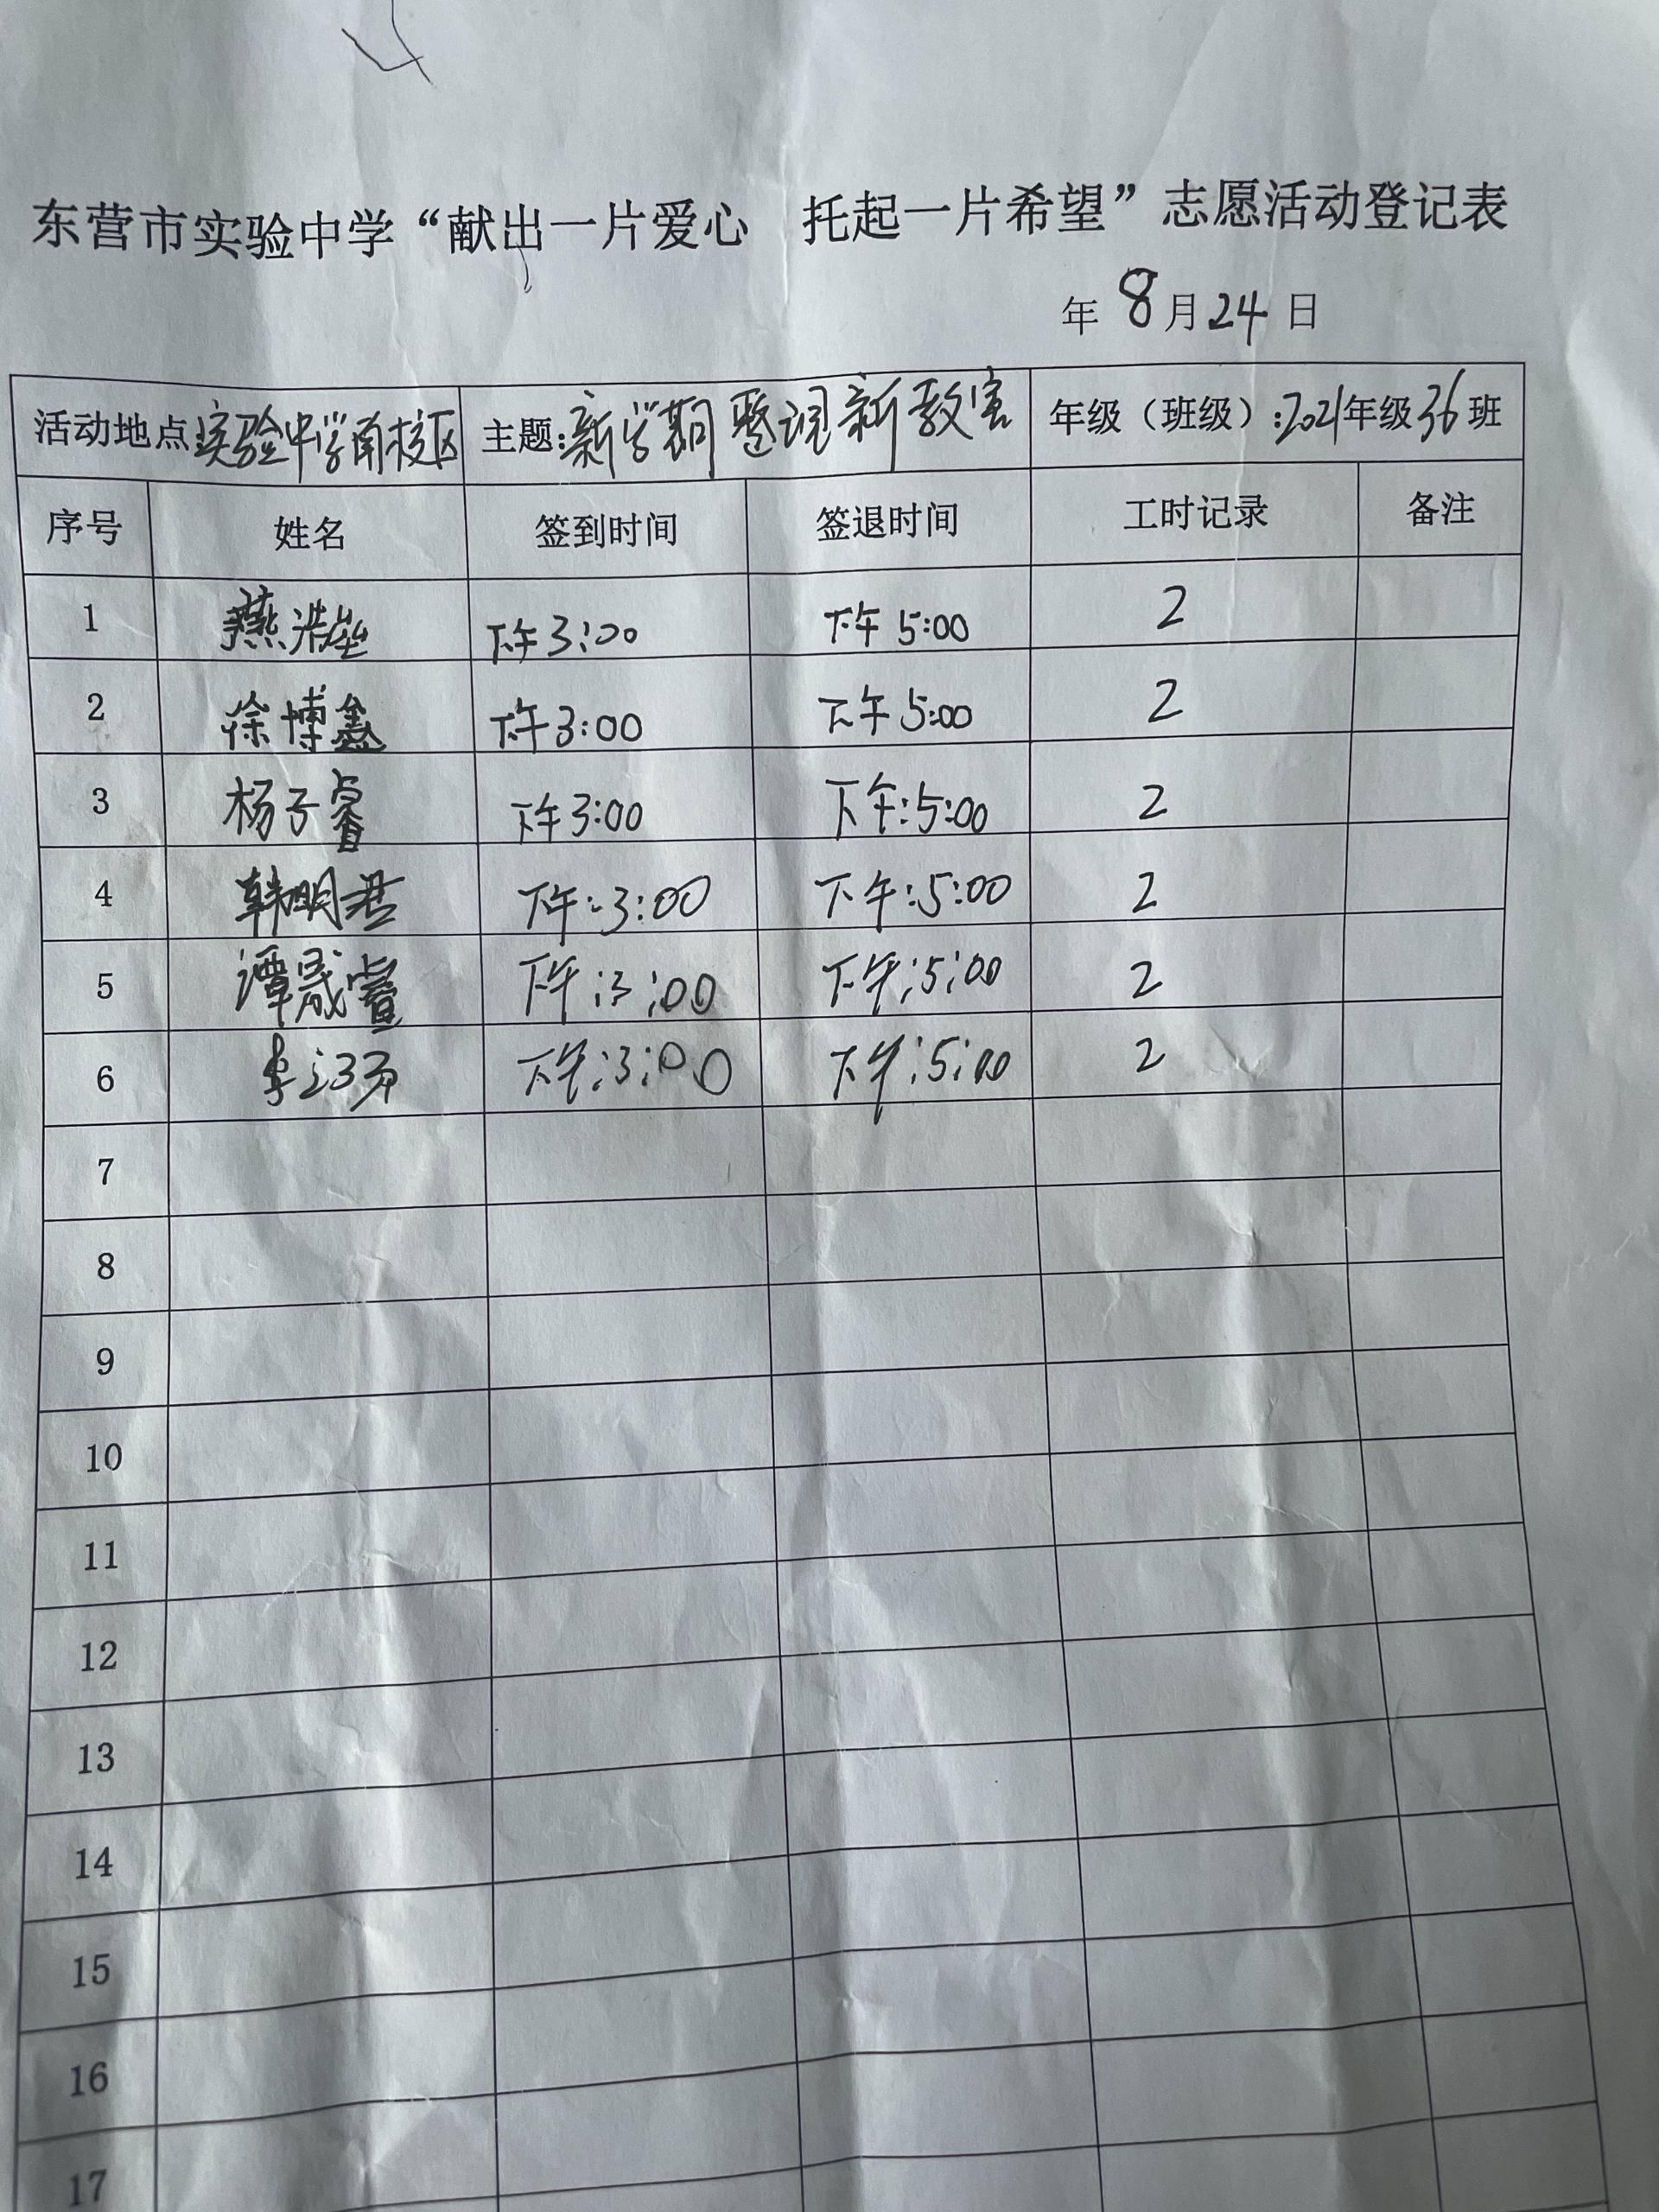 东营市实验中学“献出一片爱心 托起一片希望”志愿活动登记表
年 8 月 24 日
活动地点 实验中学南校区 主题: 新学期 整理新教室 年级（班级）: 2021年级 36 班
序号 姓名 签到时间 签退时间 工时记录 备注
1 燕浩 下午 3:00 下午 5:00 2
2 徐博鑫 下午 3:00 下午 5:00 2
3 杨子睿 下午 3:00 下午:5:00 2
4 韩明君 下午:3:00 下午:5:00 2
5 谭晟睿 下午:3:00 下午:5:00 2
6 李 下午:3:00 下午:5:00 2
7
8
9
10
11
12
13
14
15
16
17